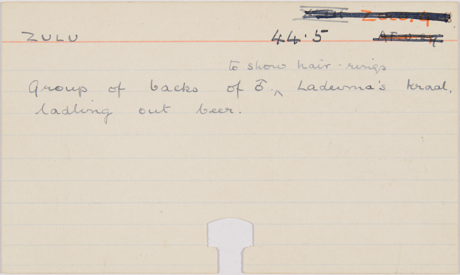 ZULU 44.5
to show hair-rings
Group of backs of Ladeuma's kraal,
ladling out beer.